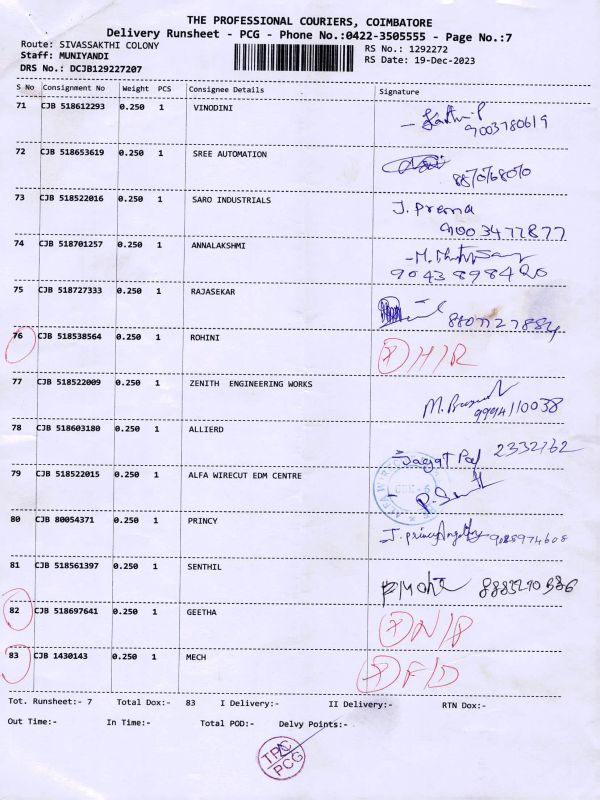 THE PROFESSIONAL COURIERS, COIMBATORE
Delivery Runsheet - PCG - Phone No.:0422-3505555 - Page No.:7
Route: SIVASSAKTHI COLONY RS No.: 1292272
Staff: MUNIYANDI RS Date: 19-Dec-2023
DRS No.: DCJB129227207
S No Consignment No Weight PCS Consignee Details Signature
71 CJB 518612293 0.250 1 VINODINI
9003780619
72 CJB 518653619 0.250 1 SREE AUTOMATION
73 CJB 518522016 0.250 1 SARO INDUSTRIALS J. Prema
9003477877
74 CJB 518701257 0.250 1 ANNALAKSHMI
9043898420
75 CJB 518727333 0.250 1 RAJASEKAR
8807727884
76 CJB 518538564 0.250 1 ROHINI H/R
77 CJB 518522009 0.250 1 ZENITH ENGINEERING WORKS
9994110038
78 CJB 518603180 0.250 1 ALLIERD
Jagat Pal 2332762
79 CJB 518522015 0.250 1 ALFA WIRECUT EDM CENTRE
80 CJB 80054371 0.250 1 PRINCY
81 CJB 518561397 0.250 1 SENTHIL
82 CJB 518697641 0.250 1 GEETHA
83 CJB 1430143 0.250 1 MECH F/D
Tot. Runsheet:- 7 Total Dox:- 83 I Delivery:- II Delivery:- RTN Dox:-
Out Time:- In Time:- Total POD:- Delvy Points:-
TPC
PCG